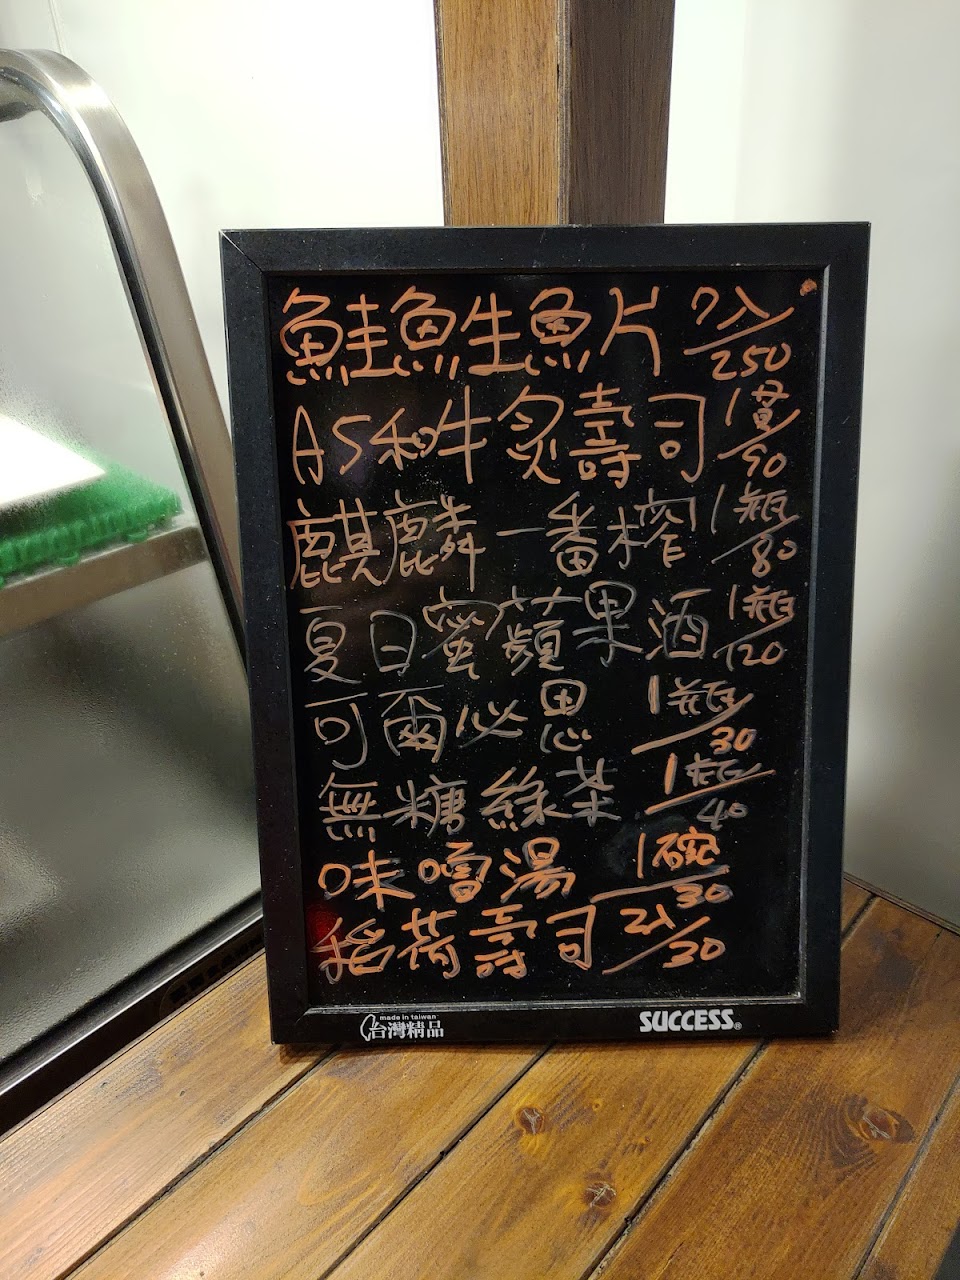 鮭魚生魚片 7入/250
A5和牛炙壽司 1貫/90
麒麟一番榨 1瓶/80
夏日蜜蘋果酒 1瓶/120
可爾必思 1瓶/30
無糖綠茶 1瓶/40
味噌湯 1碗/30
稻荷壽司 2入/30
made in taiwan
台灣精品
SUCCESS®